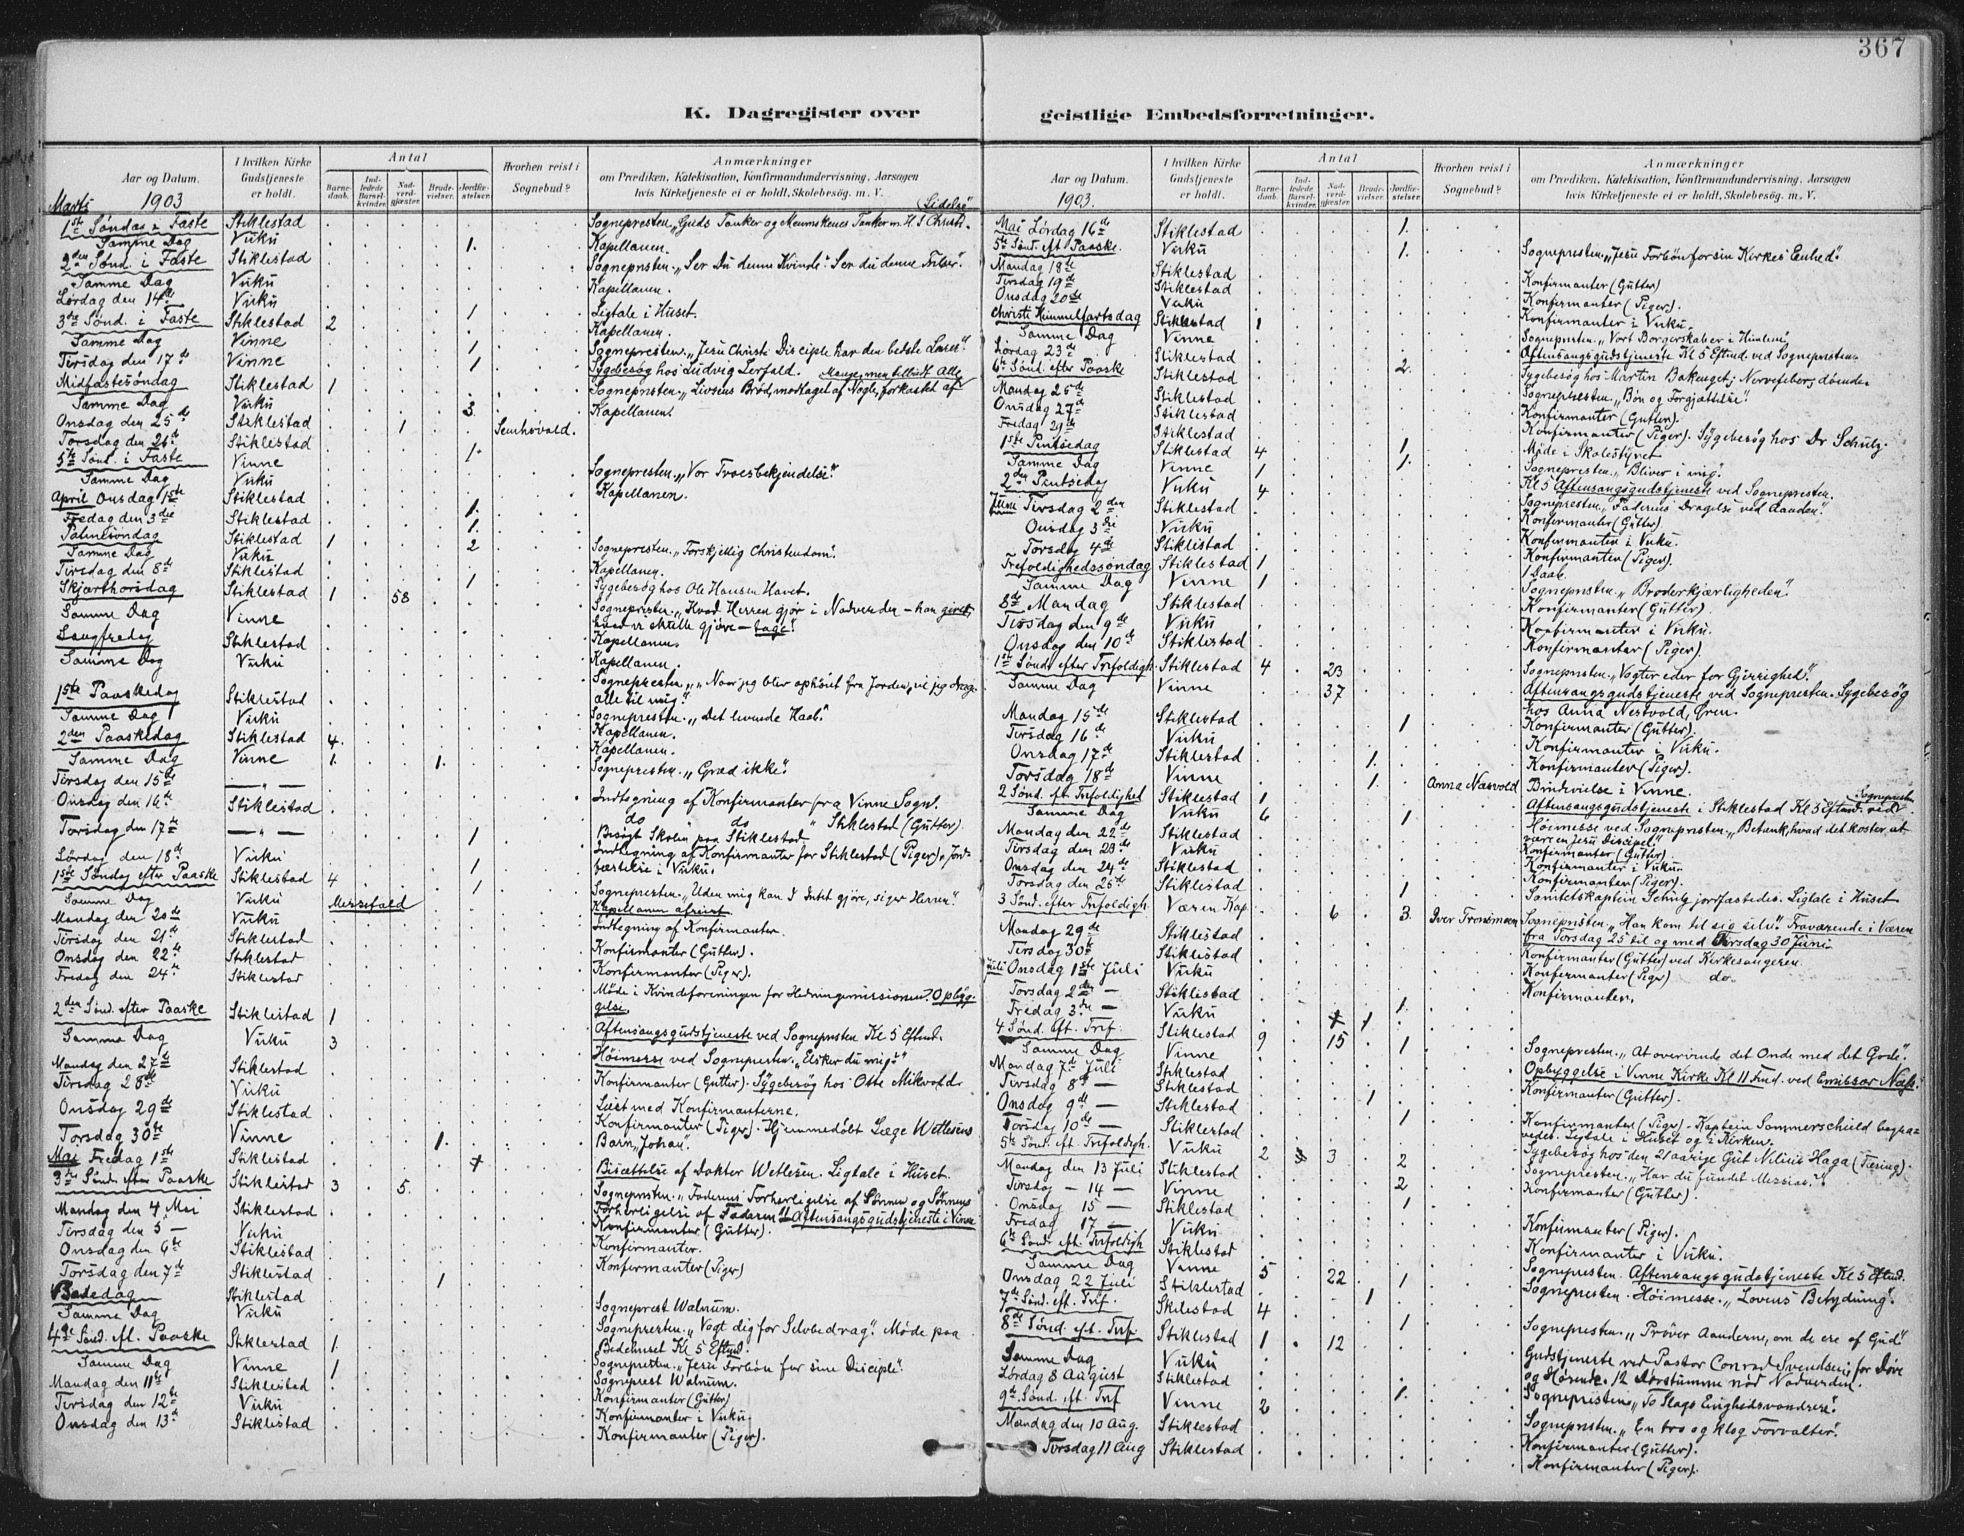 367
K. Dagregister over
geistlige Embedsforretninger.
Aar og Datum.
I hvilken Kirke Gudstjeneste er holdt.
Antal
Barnedaab.
Indledede Barselkvinder.
Nadverdgjæster.
Brudevielser.
Jordfæstelser.
Hvorhen reist i Sognebud?
Anmærkninger
om Prædiken, Katekisation, Konfirmandundervisning, Aarsagen
hvis Kirketjeneste ei er holdt, Skolebesøg. m. V.
Marts 1903
1ste Søndag i Faste Stiklestad Sognepresten. „Guds Tanker og Menneskenes Tanker om H. J. Christi Lidelse"
Samme Dag Vuku 1. Kapellanen.
2den Sønd. i Faste Stiklestad Sognepresten. „Ser Du denne Kvinde? Ser du denne Frelser".
Samme Dag Vuku Kapellanen.
Lørdag den 14de Vuku 1 Ligtale i Huset.
3die Sønd. i Faste Stiklestad 2 Kapellanen.
Samme Dag Vinne 1 Sognepresten. „Jesu Christi Disciple har den bedste
Tirsdag den 17de Vinne 1 Sygebesøg hos Ludvig Lerfald.
Midfastesøndag Stiklestad 1 Sognepresten. „Livsens Brød, modtaget af Nogle, forkastet af Mange, men tilbudt Alle
Samme Dag Vuku 3. Kapellanen.
Onsdag den 25de Stiklestad 1
Torsdag den 26de Stiklestad 1.
5te Sønd. i Faste Vinne Sognepresten. „Vor Troesbekjendelse."
Samme Dag Vuku Kapellanen.
April Onsdag 1ste Stiklestad 1.
Fredag den 3die Stiklestad 1.
Palmesøndag Stiklestad 1 2 Sognepresten. „Forskjellig Christendom".
Samme Dag Vuku Kapellanen.
Tirsdag den 8de Stiklestad 1 Sygebesøg hos Ole Hansen Havet.
Skjærthorsdag Stiklestad 1. 58 Sognepresten. „Hvad Herren gjør i Nadverden – han giver,
hvad vi skulle gjøre – tage".
Samme Dag Vinne Kapellanen.
Langfredag Stiklestad
Samme Dag Vuku Kapellanen.
Sognepresten. „Naar jeg blev ophøiet fra Jorden, vil jeg drage
alle til mig".
1ste Paaskedag Stiklestad Sognepresten. „Det levende Haab".
Samme Dag Vuku Kapellanen.
2den Paaskedag Stiklestad 4. Kapellanen.
Samme Dag Vinne 1. 1. Sognepresten. „Græd ikke".
Tirsdag den 15de — „ — Indtegning af Konfirmanter fra Vinne Sogn.
Onsdag den 16de Stiklestad do do " Stiklestad (Gutter).
Torsdag den 17de — „ — 1 Besøgt Skolen paa Stiklestad
Lørdag den 18de Vuku 1 Indtegning af Konfirmanter for Stiklestad (Piger), Jordfæstelse i Vuku.
1ste Søndag efter Paaske Stiklestad 4 1 Sognepresten. „Uden mig kan I Intet gjøre, siger Herren".
Samme Dag Vuku Kapellanen afreist.
Mandag den 20de Vuku Indtegning af Konfirmanter.
Tirsdag den 21de Stiklestad Konfirmanter (Gutter).
Onsdag den 22de Stiklestad Konfirmanter (Piger).
Fredag den 24de Stiklestad Møde i Kvindeforeningen for Hedningemissionen. Opbyggelse
2den Sønd. efter Paaske Stiklestad 1 Aftensangsgudstjeneste ved Sognepresten Kl 5 Eftmd.
Samme Dag Vuku 3 Høimesse ved Sognepresten. „Elsker du mig?"
Mandag den 27de Stiklestad Konfirmanter (Gutter).
Tirsdag 28de Vuku Læst med Konfirmanterne.
Onsdag 29de Stiklestad Konfirmanter (Piger). Hjemmedøbt Læge Wetlesens
Torsdag 30te Vinne 1. Barn, „Johan".
Mai Fredag 1ste Stiklestad Bisættelse af Doktor Wetlesen. Ligtale i Huset.
3die Sønd. efter Paaske Stiklestad 3 5. Sognepresten. „Faderens Forherligelse af Sønnen og Sønnens
Forherligelse af Faderen". Aftensangsgudstjeneste i Vinne
Mandag den 4 Mai Stiklestad Konfirmanter (Gutter).
Tirsdag den 5 — Vuku Konfirmanter.
Onsdag den 6te Stiklestad Konfirmanter (Piger)
Torsdag den 7de Stiklestad 1
Bededag Stiklestad Sogneprest Walnum.
Samme Dag Vuku Sognepresten. „Vogt dig for Selvbedrag". Møde paa
Bedehuset Kl 5 Eftmd.
4de Sønd. eft. Paaske Stiklestad 1. Sognepresten. „Jesu Forbøn for sine Disciple".
Samme Dag Vinne 1 Sogneprest Walnum.
Mandag den 11te Stiklestad Konfirmanter (Gutter)
Tirsdag den 12te Vuku Konfirmanter i Vuku.
Onsdag den 13de Stiklestad Konfirmanter (Piger).
Aar og Datum.
I hvilken Kirke Gudstjeneste er holdt.
Antal
Barnedaab.
Indledede Barselkvinder.
Nadverdgjæster.
Brudevielser.
Jordfæstelser.
Hvorhen reist i Sognebud?
Anmærkninger
om Prædiken, Katekisation, Konfirmandundervisning, Aarsagen
hvis Kirketjeneste ei er holdt, Skolebesøg. m. V.
1903.
Mai Lørdag 16de Stiklestad 1.
5te Sønd. eft. Paaske Vuku 1. Sognepresten. „Jesu Forbøn for sin Kirkes Enhed".
Mandag 18de Stiklestad Konfirmanter (Gutter)
Tirsdag 19de Stiklestad Konfirmanter (Piger).
Onsdag 20de Vuku Konfirmanter i Vuku.
Christi Himmelfartsdag Stiklestad 1 Sognepresten. „Vort Borgerskab er i Himlene".
Samme Dag Vinne Aftensangsgudstjeneste Kl 5 Eftmd. ved Sognepresten.
Lørdag 23de Stiklestad
6te Sønd. efter Paaske Stiklestad 2. Sognepresten. „Bøn og Forgjættelse".
Mandag 25de Stiklestad Konfirmanter (Gutter).
Onsdag 27de Stiklestad Konfirmanter (Piger). Sygebesøg hos Dr Schulz.
Fredag 29de Stiklestad Møde i Skolestyret
1ste Pintsedag Stiklestad 4 1 Sognepresten. „Bliver i mig".
Samme Dag Vinne 1 1. Kl 5 Aftensangsgudstjeneste ved Sognepresten.
2den Pintsedag Vuku 4 Sognepresten. „Faderens Dragelse ved Aanden".
Juni Tirsdag 2den Stiklestad Konfirmanter (Gutter)
Onsdag 3die Vuku Konfirmanter i Vuku.
Torsdag 4de Stiklestad Konfirmanter (Piger).
Trefoldighedssøndag Stiklestad 1 1 Daab.
Samme Dag Vinne 1 Sognepresten. „Broderkjærligheden".
8de Mandag Stiklestad Konfirmanter (Gutter).
Tirsdag den 9de Vuku Konfirmanter i Vuku.
Onsdag den 10de Stiklestad Konfirmanter (Piger).
1ste Sønd. efter Trefoldigh. Stiklestad 4 23 Sognepresten. „Vogter eder for Gjerrighed".
Samme Dag Vinne 37 Aftensangsgudstjeneste ved Sognepresten. Sygebesøg
hos Anna Nestvold, Øren.
Mandag 15de Stiklestad 1 Konfirmanter (Gutter).
Tirsdag 16de Vuku Konfirmanter i Vuku.
Onsdag 17de Stiklestad 1. Konfirmanter (Piger).
Torsdag 18de Vinne 1. Anna Næsvold Brudevielse i Vinne.
2 Sønd. eft. Trefoldighed Stiklestad 1 Aftensangsgudstjeneste i Stiklestad Kl 5 Eftmd. ved Sognepresten
Samme Dag Vuku 6 1 Høimesse ved Sognepresten. „Betænk, hvad det koster, at
være en Jesu Discipel".
Mandag den 22de Stiklestad Konfirmanter (Gutter)
Tirsdag den 23de Vuku Konfirmanter i Vuku.
Onsdag den 24de Stiklestad Konfirmanter (Piger).
Torsdag den 25de Stiklestad 1 Sanitetskaptein Schulz jordfæstedes. Ligtale i Huset
3 Sønd. efter Trefoldigh. Væren Kap. 6 3. Iver Tronsmoen Sognepresten. „Han kom til sig selv". Fraværende i Væren
fra Torsdag 25 til og med Tirsdag 30 Juni.
Mandag 29de Stiklestad Konfirmanter (Gutter) ved Kirkesangeren.
Tirsdag 30te Stiklestad Konfirmanter (Piger) do.
Juli Onsdag 1ste Juli Vuku Konfirmanter.
Torsdag 2den — Stiklestad
Fredag 3die — Vuku 1.
4 Sønd. eft. Tref. Stiklestad 9 15 1 Sognepresten. „At overvinde det Onde med det Gode".
Samme Dag Vinne Opbyggelse i Vinne Kirke Kl 11 Fmd. ved Emissær Næss.
Mandag 7de Juli Stiklestad Konfirmanter (Gutter).
Tirsdag 8de — Stiklestad
Onsdag 9de — Stiklestad 1 Konfirmanter (Piger). Kaptein Sommerschield begravedes. Ligtale i Huset og i Kirken.
Torsdag 10de — Stiklestad 1 Sygebesøg hos den 21 aarige Gut Nilius Haga (Tæring).
5te Sønd. eft. Trefoldigh. Vuku 2 3 2 Sognepresten. „Har du fundet Messias?"
Mandag den 13 Juli Stiklestad Konfirmanter (Gutter).
Tirsdag — 14 — Vinne 2
Onsdag 15 — Stiklestad 1 Konfirmanter (Piger).
Fredag 17 — Vuku Konfirmanter i Vuku.
6te Sønd. eft. Trefoldigh Stiklestad Sognepresten. Aftensangsgudstjeneste Kl 5 Eftmd.
Samme Dag Vinne 5 22 1 Sognepresten. Høimesse. „Lovens Betydning".
Onsdag 22 Juli Stiklestad 1
7de Sønd. eft. Tref. Stiklestad 4 1 Sognepresten. „Prøver Aanderne, om de ere af Gud".
8de Sønd. eft. Tref Stiklestad 1 12 Gudstjeneste ved Pastor Conrad Svendsen, for Døve
og Hørende. 12 Døvstumme nød Nadverden.
Samme Dag Vuku Sognepresten. „To Slags Evighedsvandrere".
Lørdag 8 August Stiklestad
9de Sønd. eft. Tref Vinne 2 1. Sognepresten. „En tro og klog Forvalter".
Mandag den 10 Aug. Stiklestad Konfirmanter (Gutter).
Tirsdag 11 Aug Stiklestad Konfirmanter (Piger).